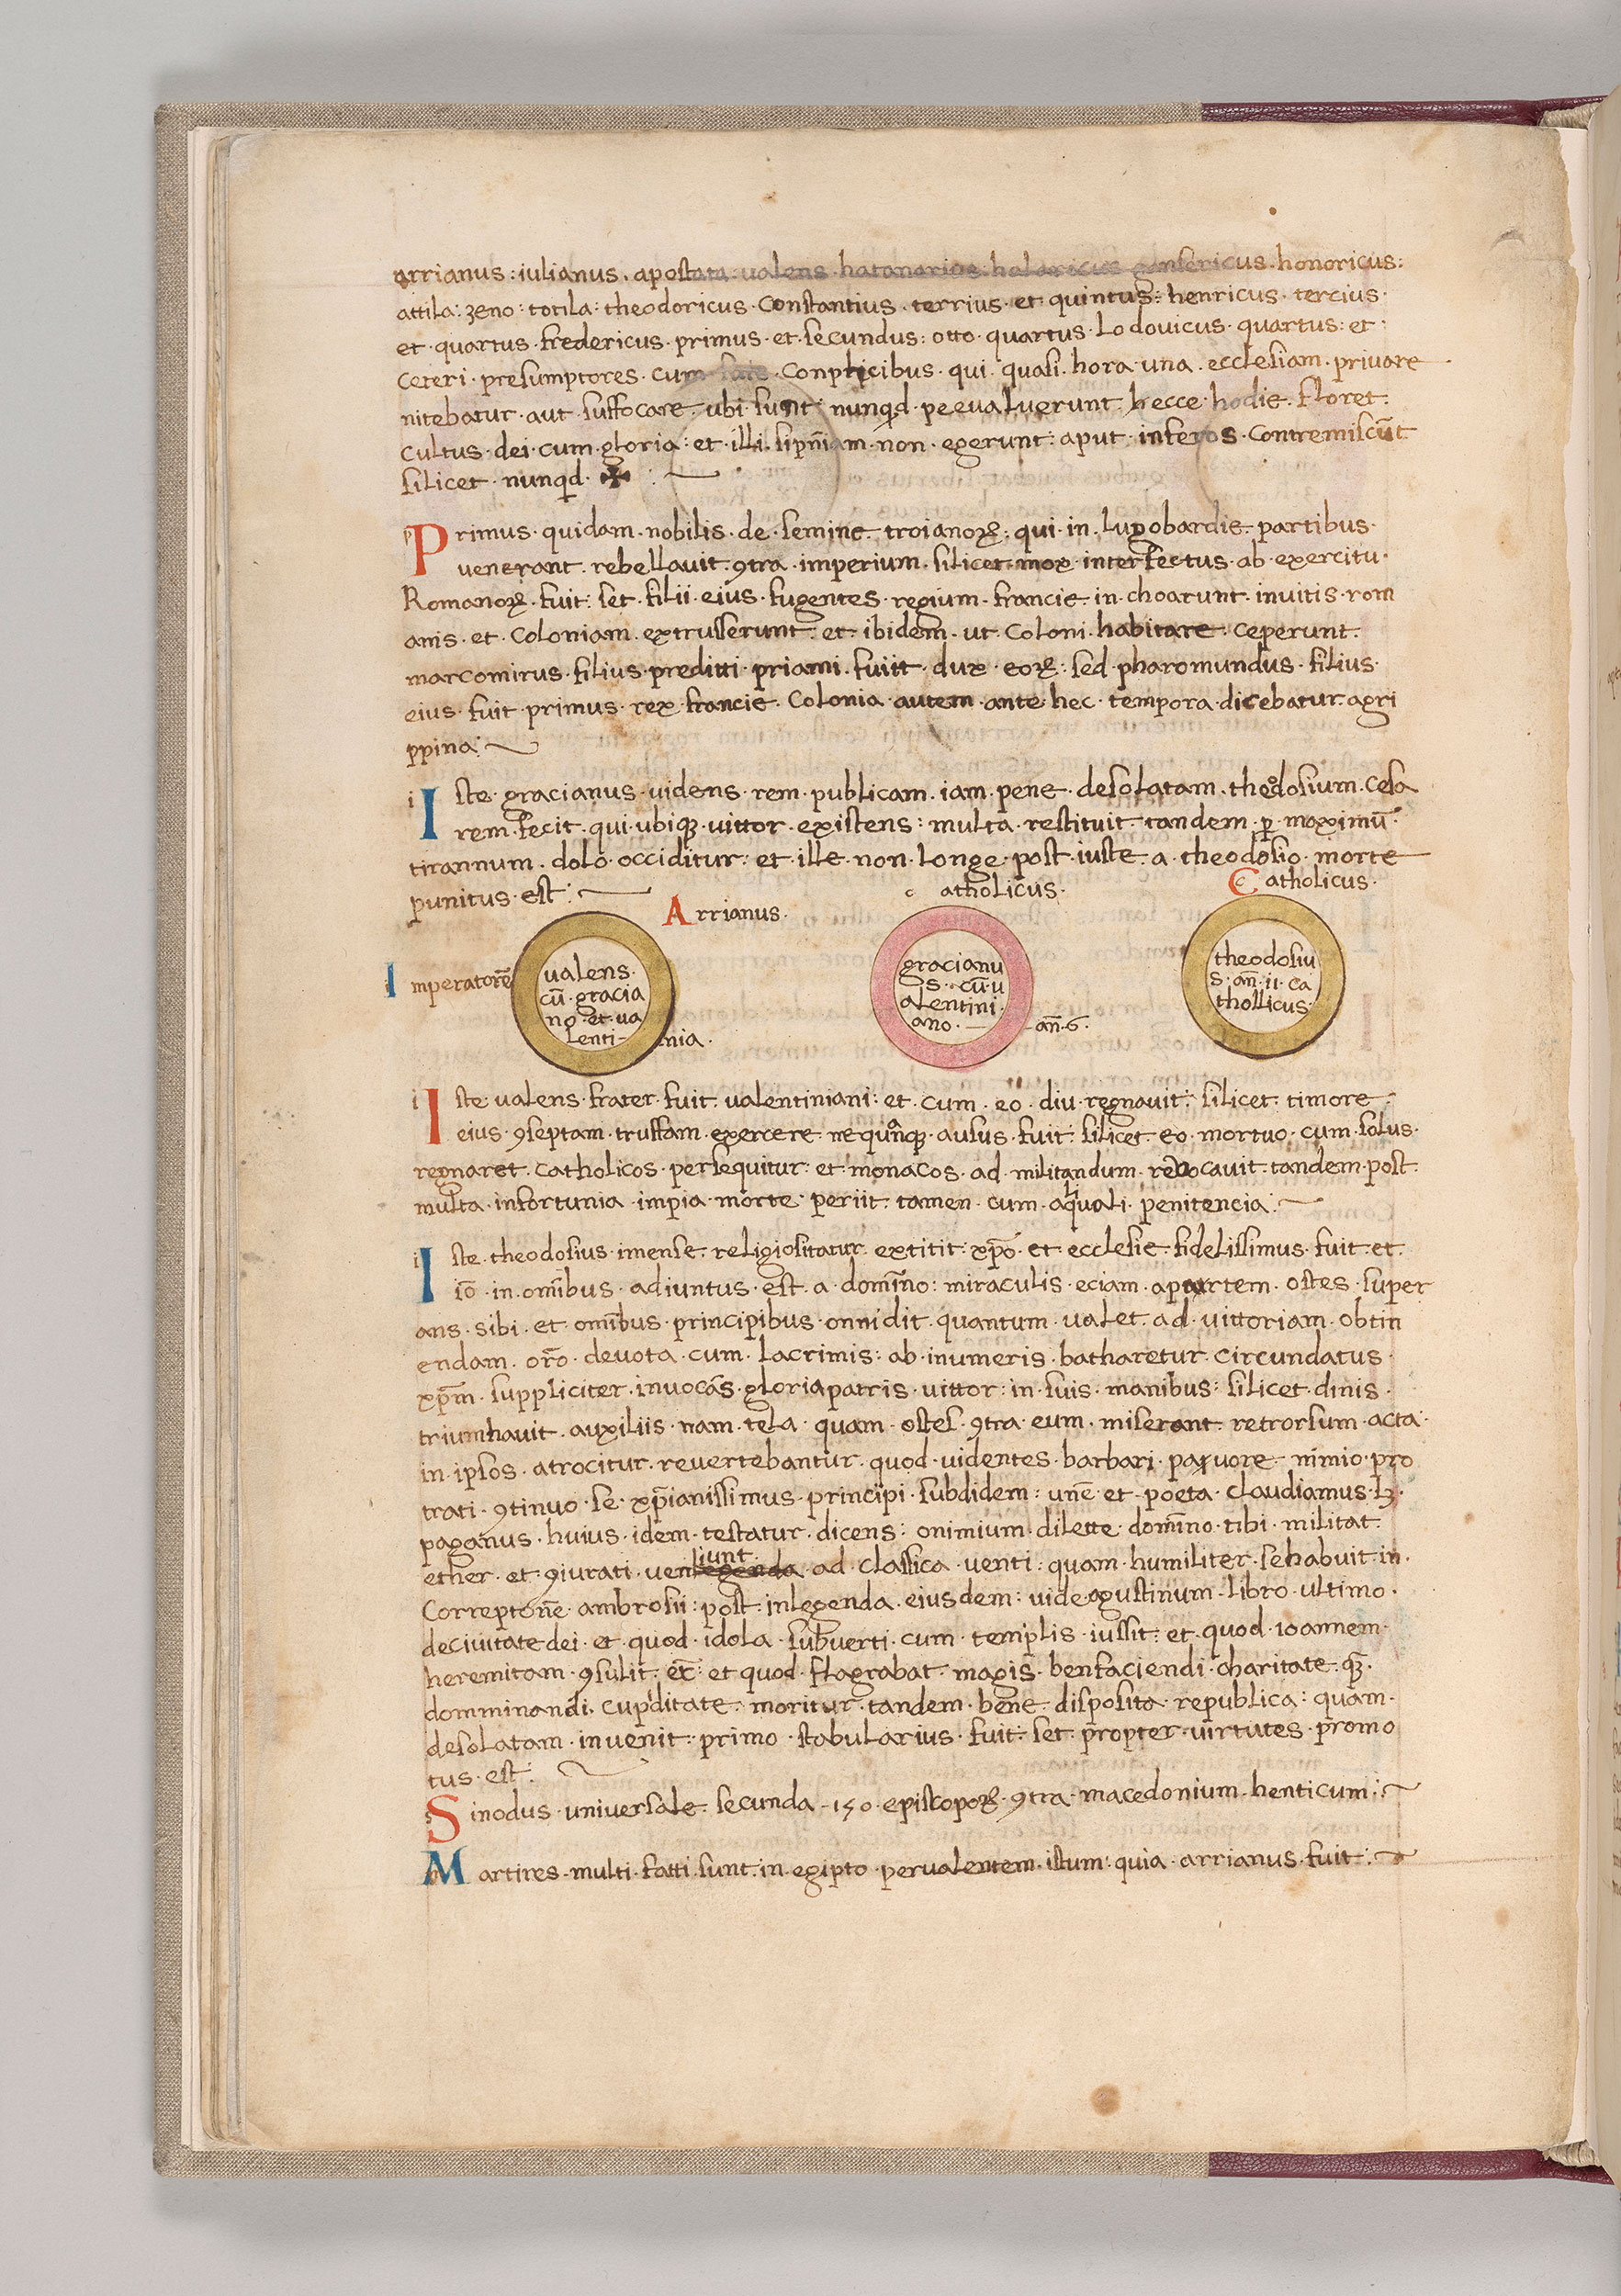 arrianus : iulianus . apostata : valens . hatanarius : halaricus gensericus . honoricus :
attila : zeno : totila : theodoricus . Constantius . terrius . et quintus : henricus . tercius .
et . quartus . fredericus . primus . et . secundus : otto . quartus . Lodovicus . quartus : et :
ceteri . presumptores . cum suis . Conplicibus . qui . quasi . hora . una . ecclesiam . privare .
nitebatur . aut . suffocare . ubi . sunt : nunqd . pevaluerunt : hecce . hodie . floret .
cultus . dei . cum . gloria : et . illi . si pñiam . non . egerunt : aput . inferos . Contremiscūt
silicet . nunqd . ✠ : ~
P rimus . quidam . nobilis . de . semine . troianoꝝ : qui . in . lugobardie . partibus .
venerant . rebellavit . ꝯtra . imperium . silicet . mox . interfectus . ab . exercitu .
Romanoꝝ . fuit : set . filii . eius . fugentes . regium . francie . in . choarunt . invitis . rom
anis . et . Coloniam . extrusserunt : et . ibidem . ut . Coloni . habitare . ceperunt .
marcomirus . filius . preditti . priami . fuitt . dux . eoꝝ : sed . pharomundus . filius .
eius . fuit . primus . rex . francie . Colonia . autem . ante . hec . tempora . dicebatur . agri
ppina : ~
i I ste . gracianus . videns . rem . publicam . iam . pene . desolatam . theodosium . Cesa
rem . fecit . qui . ubiqꝫ . vittor . existens : multa . restituit . tandem . ꝑ . maximū .
tirannum . dolo . occiditur : et . ille . non . longe . post . iuste . a . theodosio . morte
punitus . est : ~
A rrianus .
c atholicus .
C atholicus .
I mperatorē
valens .
cū . gracia
no . et . va
lenti- nia .
gracianu
s . cū . v
alentini .
ano . — - añ . 6 .
theodosiu
s . añ . 11 . ca
thollicus .
i I ste . valens . frater . fuit . valentiniani : et . cum . eo . diu . regnavit : silicet . timore .
eius . ꝯseptam . truffam . exercere . nequāqꝫ . ausus . fuit : silicet . eo . mortuo . cum . solus .
regnaret . catholicos . persequitur : et . monacos . ad . militandum . revocavit . tandem . post .
multa . infortunia . impia . morte . periit . tamen . cum . aquali . penitencia : ~
i I ste . theodosius . imense . religiositatur . extitit : xp̄o . et . ecclesie . fidelissimus . fuit . et .
iō . in . omībus . adiuntus . est . a . domino : miraculis . eciam . apartem . ostes . super
ans . sibi . et . omībus . principibus . onnidit . quantum . valet . ad . vittoriam . obtin
endam . or̄o . devota . cum . lacrimis : ab . inumeris . batharetur . circundatus .
xp̄m . suppliciter . invocās . gloria patris . vittor : in . suis . manibus : silicet . dinis .
triumhavit . auxiliis . nam . tela . quam . ostes . ꝯtra . eum . miserant . retrorsum . acta .
in . ipsos . atrocitur . revertebantur . quod . videntes . barbari . pavore . nimio . pro
trati . ꝯtinuo . se . xp̄ianissimus . principi . subdidem : unē . et . poeta . claudiamus . lꝫ .
paganus . huius . idem . testatur . dicens : onimium . dilette . domino . tibi . militat .
ether . et . ꝯiurati . veniunt . ad . classica . venti : quam . humiliter . se habuit . in .
Correptonē . ambrosii : post . in legenda . eiusdem : vide agustinum . libro . ultimo .
de civitate dei . et . quod . idola . subverti . cum . templis . iussit : et . quod . ioannem .
heremitam . ꝯsulit . etc̄ : et quod . flagrabat . magis . benfaciendi . charitate . qꝫ .
domminandi . cupditate . moritur . tandem . bene . disposita . republica : quam .
desolatam . invenit : primo . stabularius . fuit : set . propter . virtutes . promo
tus . est : ~
S inodus . universale . secunda . 150 . episcopoꝝ . ꝯtra . macedonium . henticum : ~
M artires . multi . fatti . sunt . in . egipto . per valentem . istum : quia . arrianus . fuit : ~